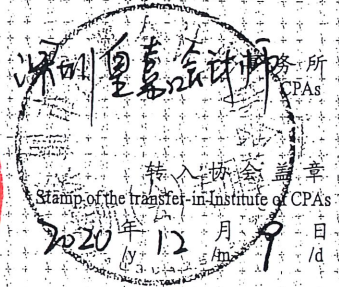 深圳皇嘉会计师务所
CPAs
转入协会盖章
Stamp of the transfer-in Institute of CPAs
2020年12月9日
/y /m /d